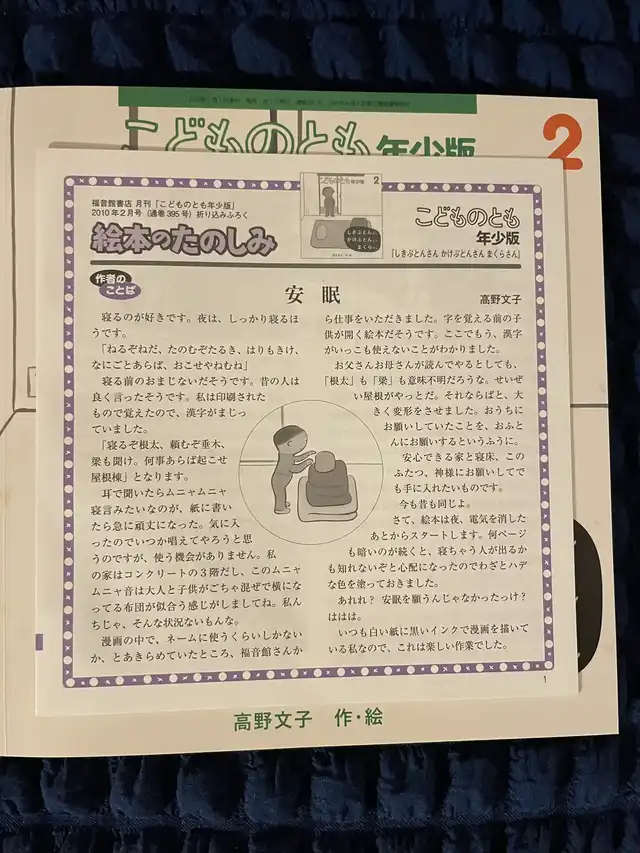 こどものとも 年少版
2
福音館書店 月刊「こどものとも年少版」
2010年2月号（通巻395号）折り込みふろく
絵本のたのしみ
こどものとも 年少版 2
しきぶとんさん
かけぶとんさん
まくらさん
こどものとも
年少版
「しきぶとんさん かけぶとんさん まくらさん」
作者の
ことば
安眠
高野文子
寝るのが好きです。夜は、しっかり寝るほ
うです。
「ねるぞねだ、たのむぞたるき、はりもきけ、
なにごとあらば、おこせやねむね」
寝る前のおまじないだそうです。昔の人は
良く言ったそうです。私は印刷された
もので覚えたので、漢字がまじっ
ていました。
「寝るぞ根太、頼むぞ垂木、
梁も聞け。何事あらば起こせ
屋根棟」となります。
耳で聞いたらムニャムニャ
寝言みたいなのが、紙に書い
たら急に頑丈になった。気に入
ったのでいつか唱えてやろうと思
うのですが、使う機会がありません。私
の家はコンクリートの3階だし、このムニャ
ムニャ音は大人と子供がごちゃ混ぜで横にな
ってる布団が似合う感じがしましてね。私ん
ちじゃ、そんな状況ないもんな。
漫画の中で、ネームに使うくらいしかない
か、とあきらめていたところ、福音館さんか
ら仕事をいただきました。字を覚える前の子
供が開く絵本だそうです。ここでもう、漢字
がいっこも使えないことがわかりました。
お父さんお母さんが読んでやるとしても、
「根太」も「梁」も意味不明だろうな。せいぜ
い屋根がやっとだ。それならばと、大
きく変形をさせました。おうちに
お願いしていたことを、おふと
んにお願いするというふうに。
安心できる家と寝床、この
ふたつ、神様にお願いしてで
も手に入れたいものです。
今も昔も同じよ。
さて、絵本は夜、電気を消した
あとからスタートします。何ページ
も暗いのが続くと、寝ちゃう人が出るか
も知れないぞと心配になったのでわざとハデ
な色を塗っておきました。
あれれ？ 安眠を願うんじゃなかったっけ？
ははは。
いつも白い紙に黒いインクで漫画を描いて
いる私なので、これは楽しい作業でした。
1
高野文子 作・絵